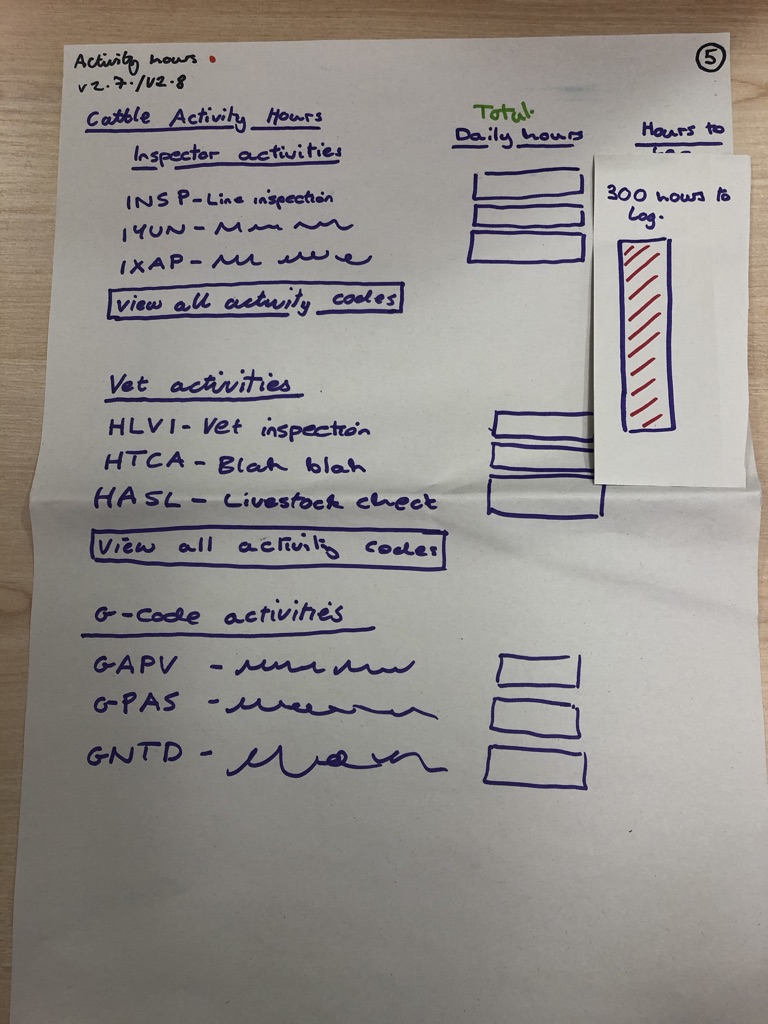 Activity hours
v2.7./v2.8
5
Cattle Activity Hours
Total
Daily hours
Hours to
Inspector activities
300 hours to
log.
INSP - Line inspection
IYUN -
IXAP -
View all activity codes
Vet activities
HLVI - Vet inspection
HTCA - Blah blah
HASL - Livestock check
View all activity codes
G-code activities
GAPV -
GPAS -
GNTD -